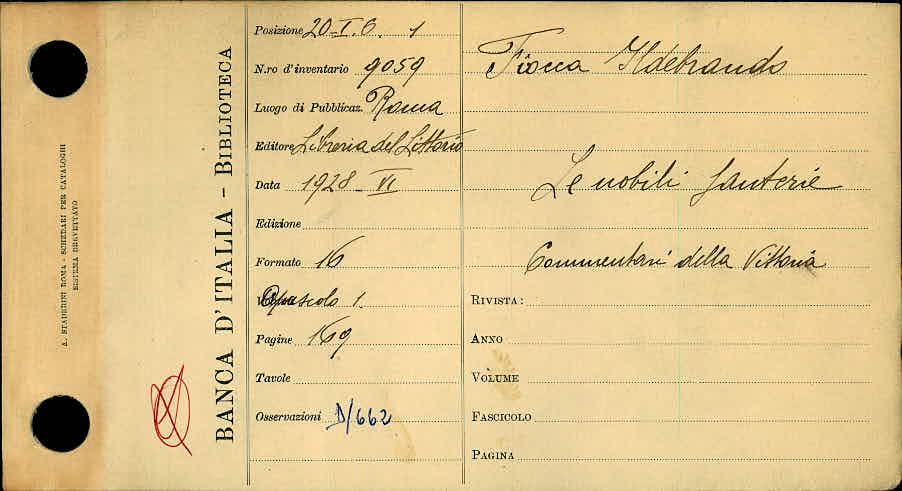 A. STADERINI ROMA - SCHEDARI PER CATALOGHI
SISTEMA BREVETTATO
BANCA D'ITALIA - BIBLIOTECA
Posizione 20-I.6. 1
N.ro d'inventario 9059
Luogo di Pubblicaz. Roma
Editore Libreria del Littorio
Data 1928 - VI
Edizione
Formato 16
Opuscolo 1.
Pagine 169
Tavole
Osservazioni D/662
Fiocca Ildebrando
Le nobili fanterie
Commentari della Vittoria
RIVISTA:
ANNO
VOLUME
FASCICOLO
PAGINA